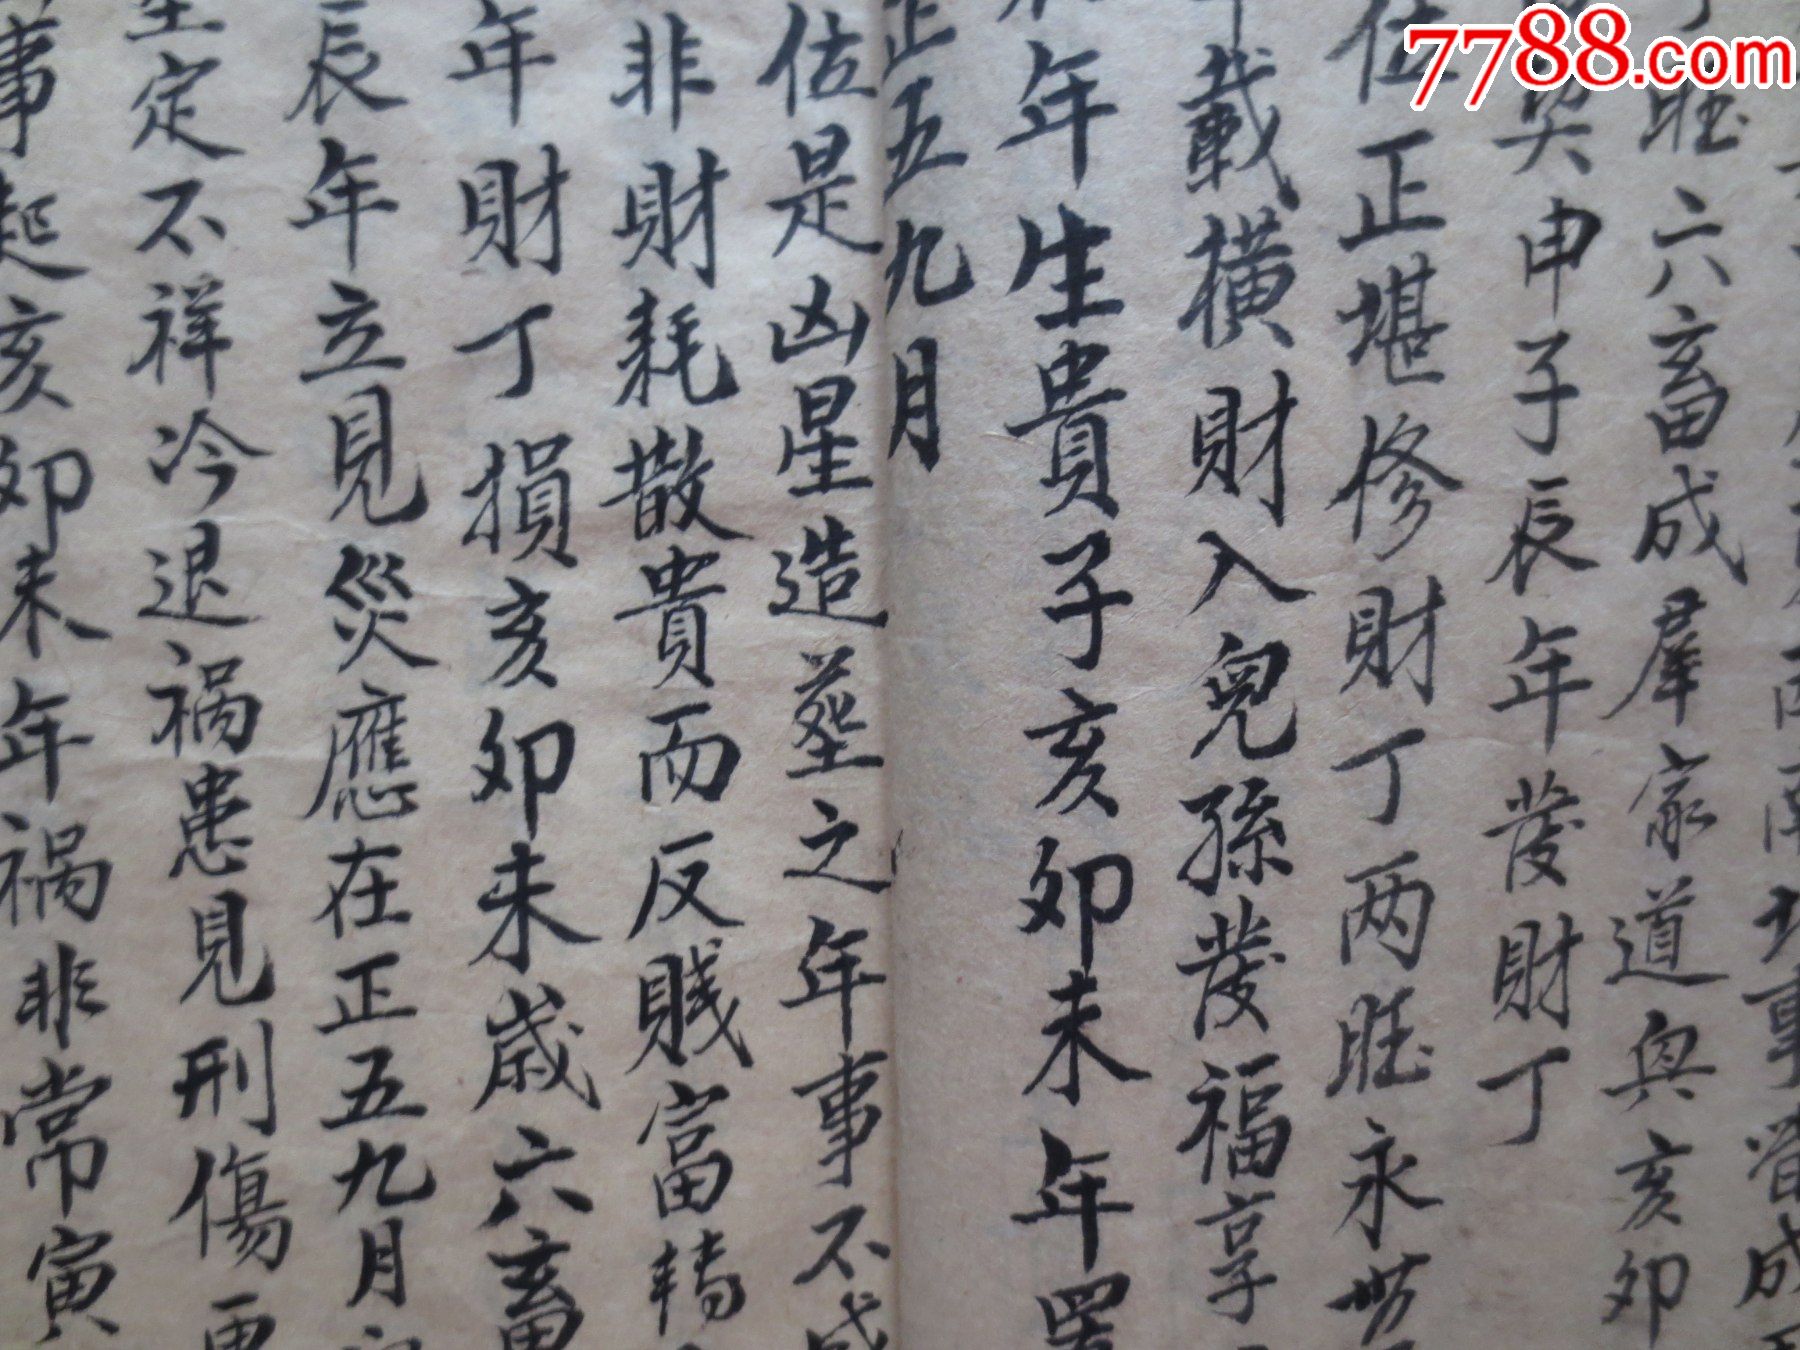 7788.com
事晋成
旺六畜成羣家道興亥卯
契申子辰年發財丁
位正堪修財丁两旺永世
載横財入兒孫發福享
年生貴子亥卯未年罢
正五九月
位是凶星造塟之年事不成
非財耗散貴而反賤富轉
年財丁損亥卯未歲六畜
辰年立見災應在正五九月
定不祥冷退禍患見刑傷
事起亥卯未年禍非常寅